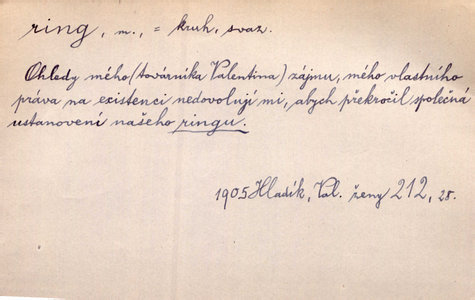 ring, m., = kruh, svaz.
Ohledy mého (továrníka Valentina) zájmu, mého vlastního
práva na existenci nedovolují mi, abych překročil společná
ustanovení našeho ringu.
1905 Hladík, Val. ženy 212, 28.